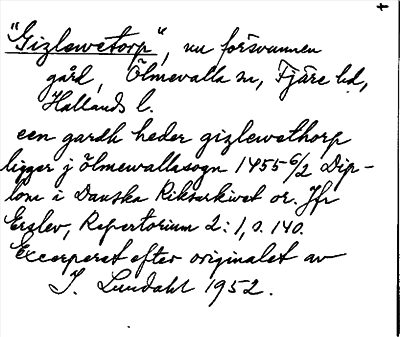 "Gizlewetorp", nu försvunnen
gård, Ölmevalla sn, Fjäre hd,
Hallands l.
een gardh heder gizlewethorp
ligger j ölmewallasogn 1455 6/2 Dip-
lom i Danska Riksarkivet or. Jfr
Erslev, Repertorium 2:1, s. 140.
Excerperat efter originalet av
I. Lundahl 1952.